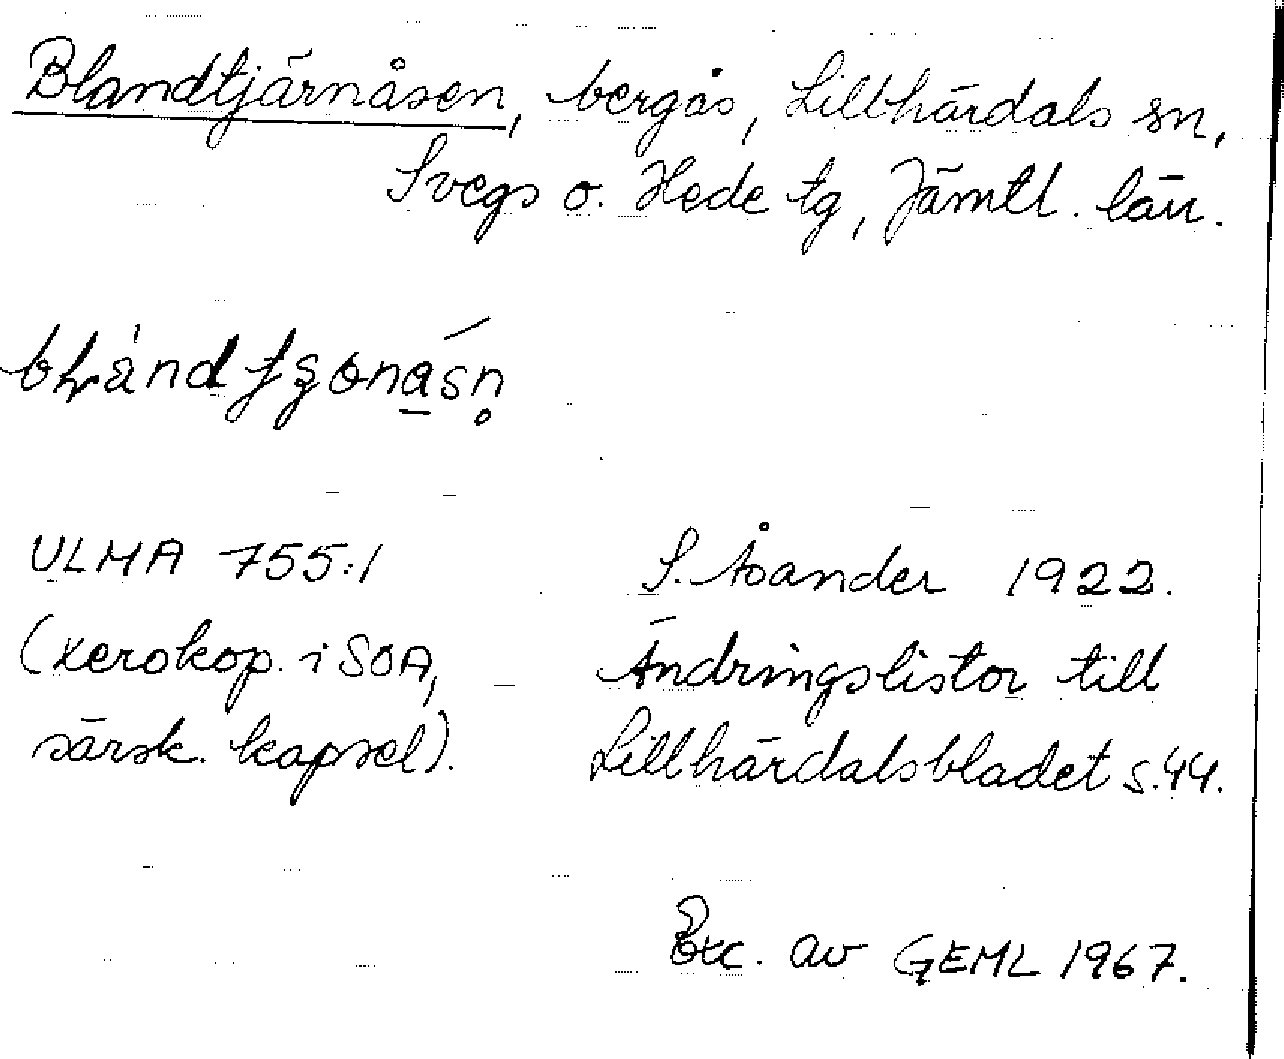 Blandtjärnåsen, bergås, Lillhärdals sn,
Svegs o. Hede tg, Jämtl. län.
ULMA 755:1
S. Åsander 1922.
(xerokop. i SOA,
Ändringslistor till
särsk. kapsel).
Lillhärdalsbladet s. 44.
Exc. av GEML 1967.